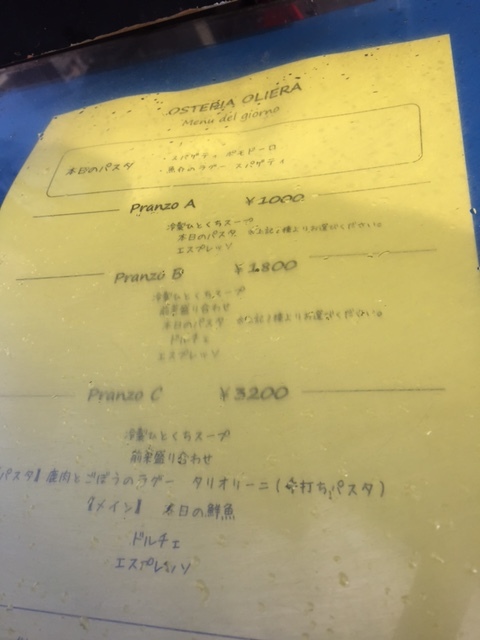 OSTERIA OLIERA
Menu del giorno
本日のパスタ
・スパゲティ ポモドーロ
・魚介のラグー スパゲティ
Pranzo A ¥1000
冷製ひとくちスープ
本日のパスタ ※上記1種よりお選びください。
エスプレッソ
Pranzo B ¥1.800
冷製ひとくちスープ
前菜盛り合わせ
本日のパスタ ※上記1種よりお選びください。
ドルチェ
エスプレッソ
Pranzo C ¥3200
冷製ひとくちスープ
前菜盛り合わせ
パスタ】鹿肉とごぼうのラグー タリオリーニ(手打ちパスタ)
【メイン】 本日の鮮魚
ドルチェ
エスプレッソ